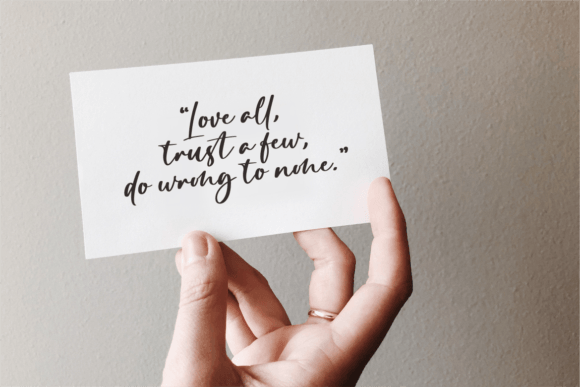 “Love all,
trust a few,
do wrong to none.”